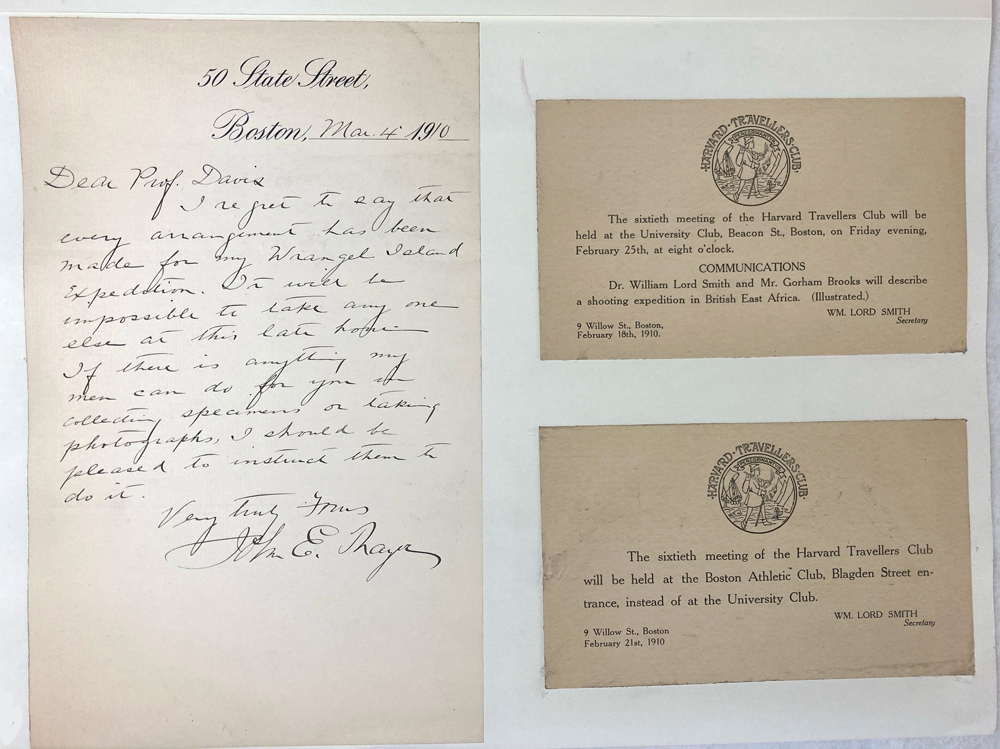 50 State Street,
Boston, Mar. 4 1910
Dear Prof. Davis
I regret to say that
every arrangement has been
made for my Wrangel Island
Expedition. It will be
impossible to take any one
else at this late hour
If there is anything my
men can do for you in
collecting specimens or taking
photographs, I should be
pleased to instruct them to
do it.
Very truly Yours
John E. Thayer
HARVARD·TRAVELLERS·CLUB·
The sixtieth meeting of the Harvard Travellers Club will be
held at the University Club, Beacon St., Boston, on Friday evening,
February 25th, at eight o'clock.
COMMUNICATIONS
Dr. William Lord Smith and Mr. Gorham Brooks will describe
a shooting expedition in British East Africa. (Illustrated.)
WM. LORD SMITH
Secretary
9 Willow St., Boston,
February 18th, 1910.
HARVARD·TRAVELLERS·CLUB·
The sixtieth meeting of the Harvard Travellers Club
will be held at the Boston Athletic Club, Blagden Street en-
trance, instead of at the University Club.
WM. LORD SMITH
Secretary
9 Willow St., Boston
February 21st, 1910